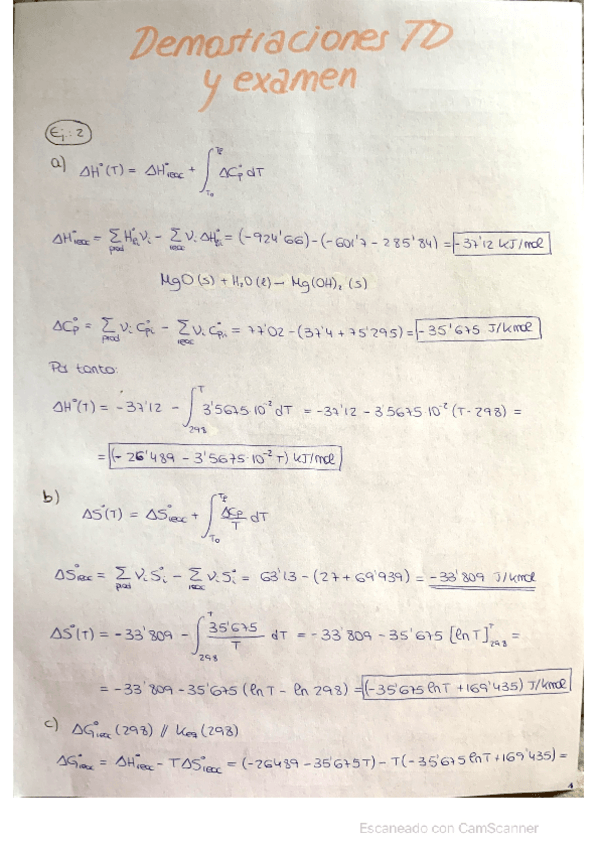 Demostraciones TD
y examen
Ej: 2
a) ΔH°(T) = ΔH°reac + ∫_{T₀}^{Tf} ΔC°p dT
ΔH°reac = Σ_prod H°fi νi − Σ_reac νi ΔH°fi = (−924'66)−(−601'7 − 285'84) = −37'12 kJ/mol
MgO (s) + H₂O (l) — Mg(OH)₂ (s)
ΔC°p = Σ_prod νi C°pi − Σ_reac νi C°pi = 77'02 − (37'4 + 75'295) = −35'675 J/kmol
Por tanto:
ΔH°(T) = −37'12 − ∫_{298}^{T} 3'5675·10⁻² dT = −37'12 − 3'5675·10⁻² (T − 298) =
= (−26'489 − 3'5675·10⁻² T) kJ/mol
b) ΔS°(T) = ΔS°reac + ∫_{T₀}^{Tf} ΔCp/T dT
ΔS°reac = Σ_prod νi S°i − Σ_reac νi S°i = 63'13 − (27 + 69'939) = −33'809 J/kmol
ΔS°(T) = −33'809 − ∫_{298}^{T} 35'675/T dT = −33'809 − 35'675 [ln T]_{298}^{T} =
= −33'809 − 35'675 (ln T − ln 298) = (−35'675 ln T + 169'435) J/kmol
c) ΔG°reac (298) // Keq (298)
ΔG°reac = ΔH°reac − TΔS°reac = (−26489 − 35'675T) − T(−35'675 ln T + 169'435) =
1
Escaneado con CamScanner